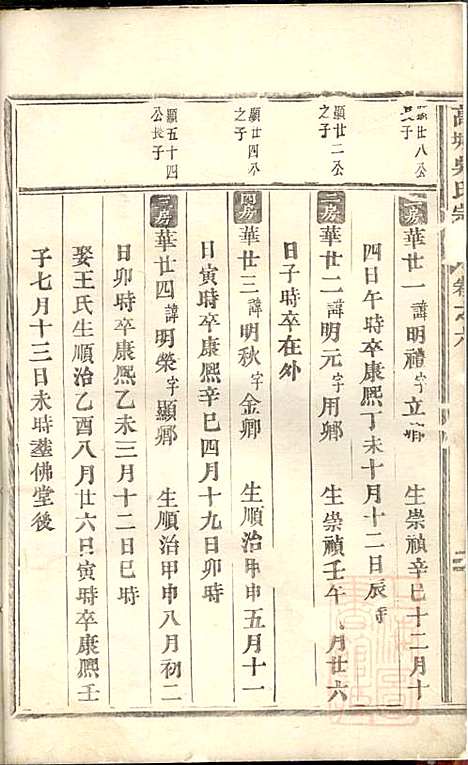 卷之六
顯廿八公
長子
二房華世一諱明禮字立鄉 生崇禎辛巳十二月十
四日午時卒康熙丁未十月十二日辰時
顯廿二公
之子
二房華世二諱明元字用鄉 生崇禎壬午 月廿六
日子時卒在外
顯廿四公
之子
四房華世三諱明秋字金鄉 生順治甲申五月十一
日寅時卒康熙辛巳四月十九日卯時
顯五十四
公長子
二房華世四諱明榮字顯鄉 生順治甲申八月初二
日卯時卒康熙乙未三月十二日巳時
娶王氏生順治乙酉八月廿六日寅時卒康熙壬
子七月十三日未時塟佛堂後